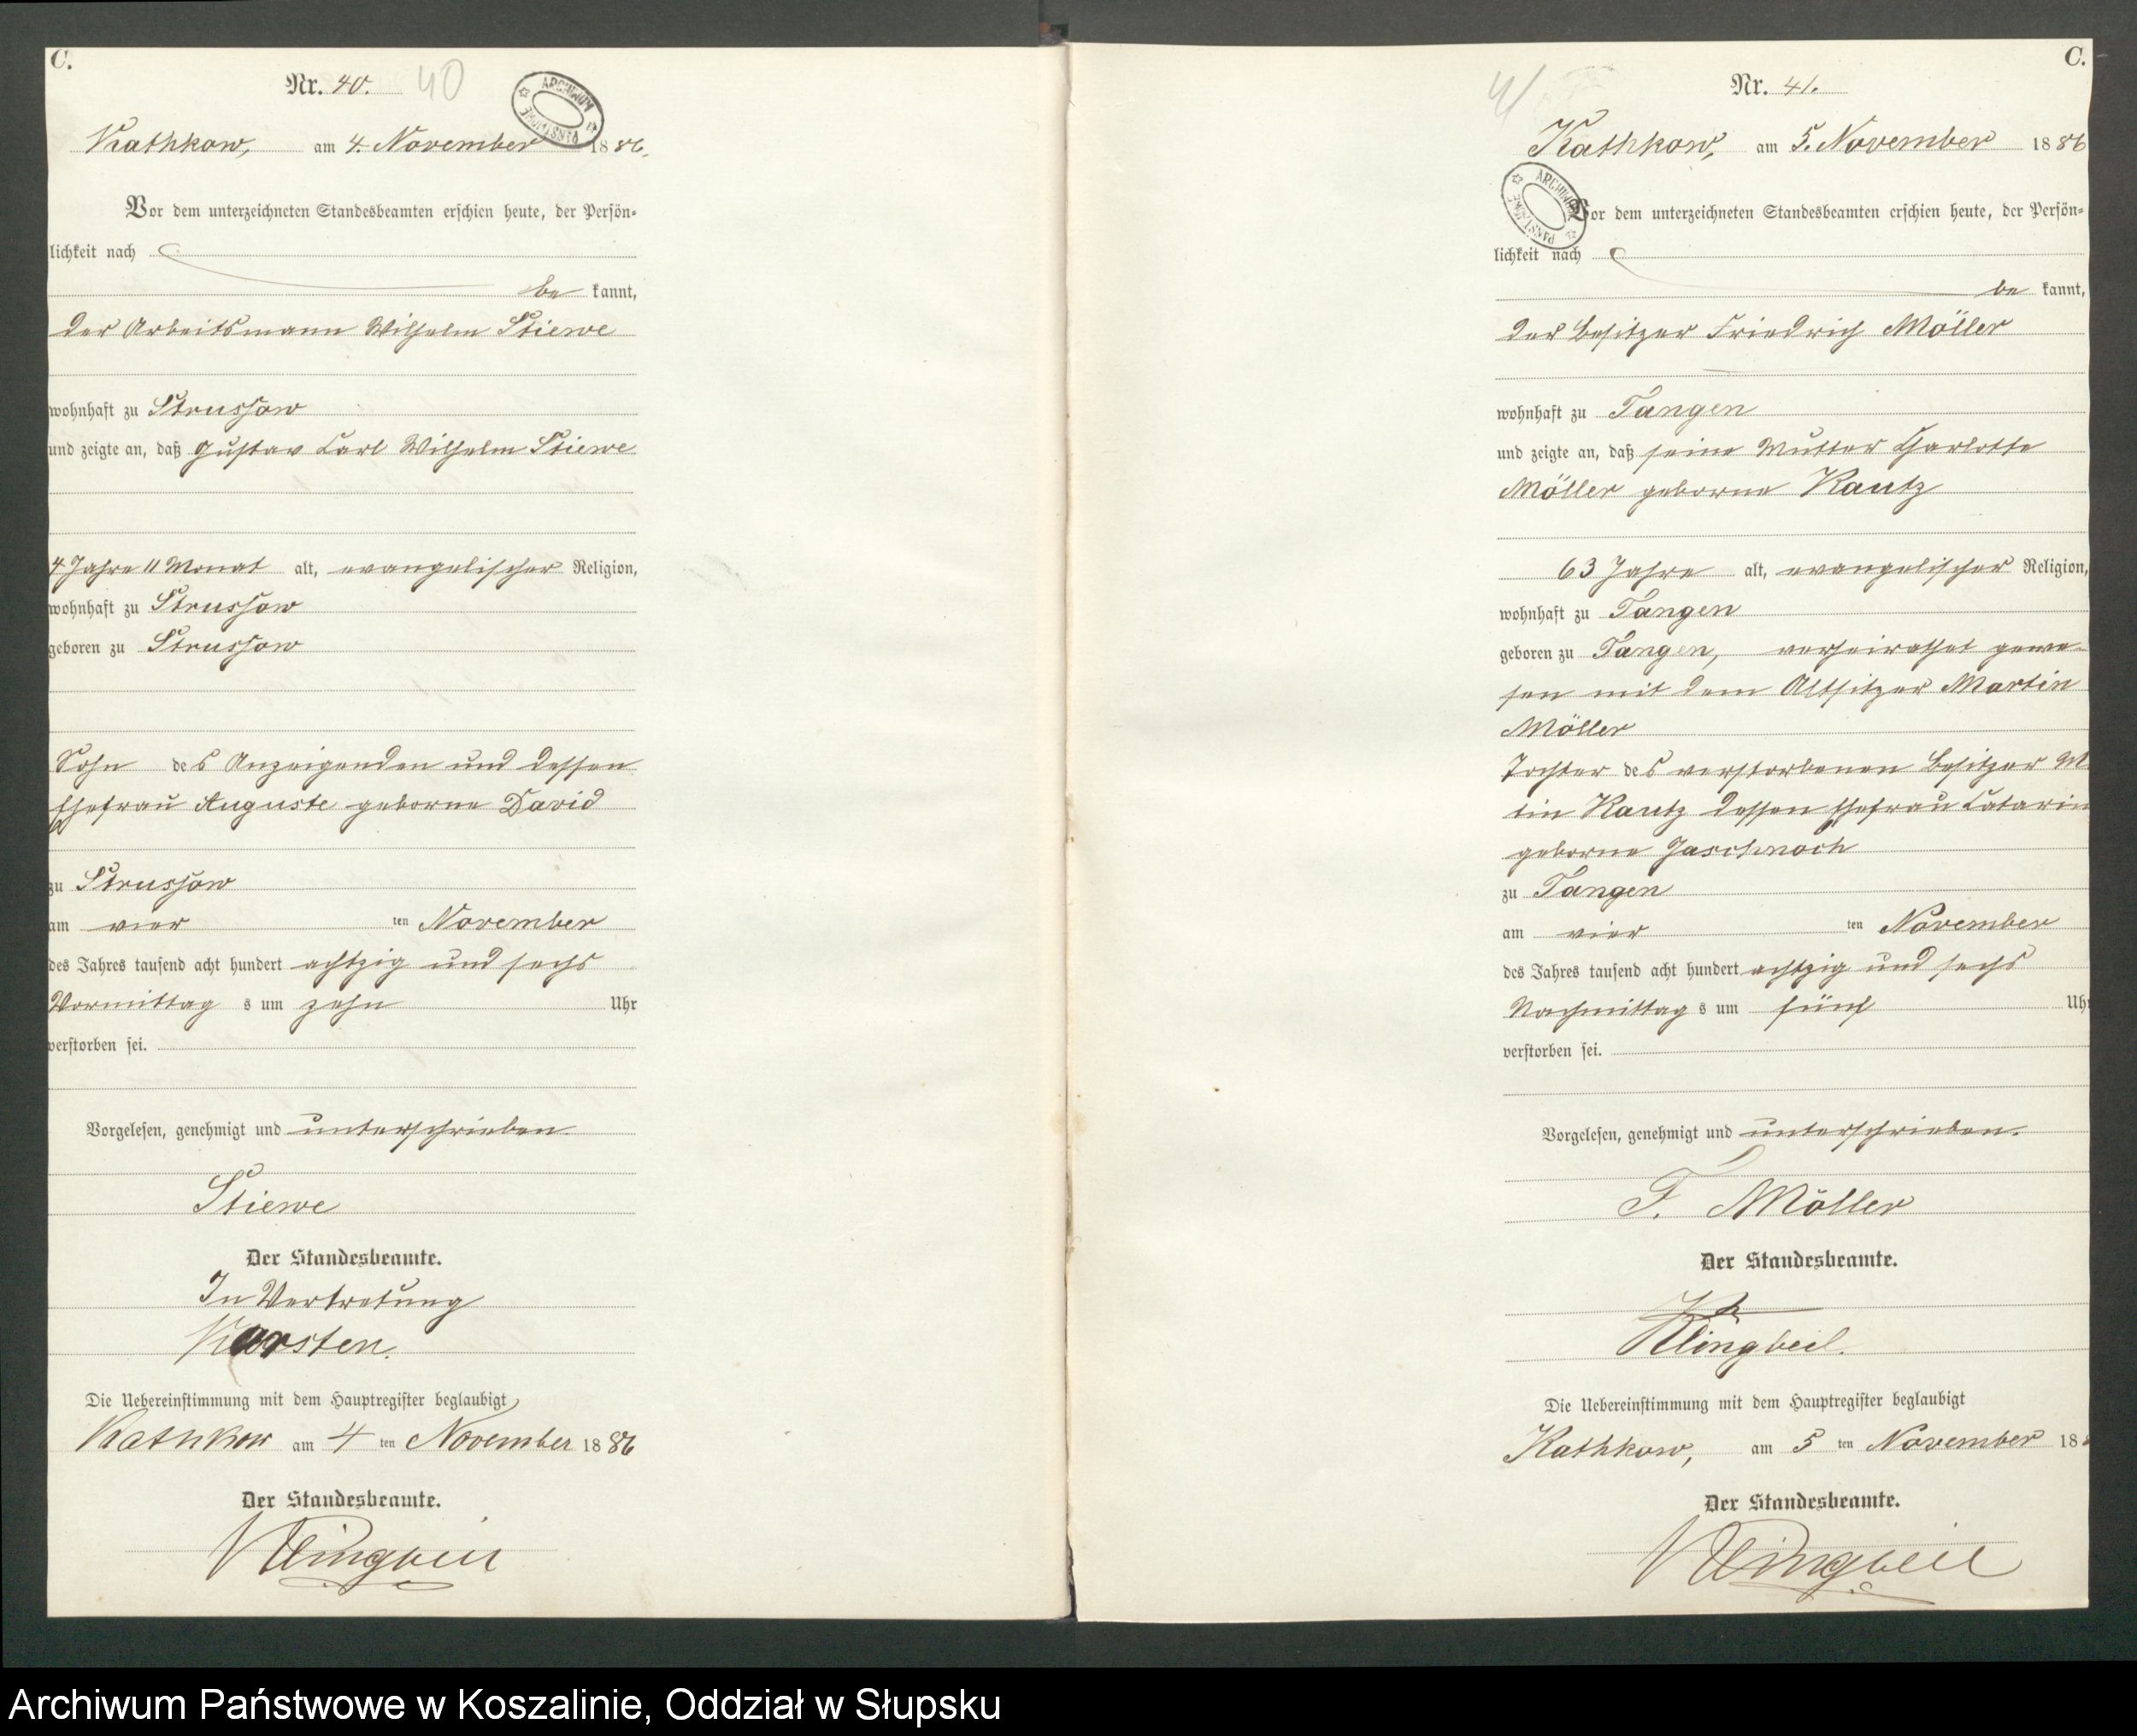 C.
Nr. 40.
40
ARCHIWUM PAŃSTWOWE
Kathkow, am 4. November 1886.
Vor dem unterzeichneten Standesbeamten erschien heute, der Persön-
lichkeit nach
be kannt,
der Arbeitsmann Wilhelm Stiewe
wohnhaft zu Strussow
und zeigte an, daß Gustav Carl Wilhelm Stiewe
4 Jahre 11 Monat alt, evangelischer Religion,
wohnhaft zu Strussow
geboren zu Strussow
Sohn des Anzeigenden und dessen
Ehefrau Auguste geborne David
zu Strussow
am vier ten November
des Jahres tausend acht hundert achtzig und sechs
Vormittag s um zehn Uhr
verstorben sei.
Vorgelesen, genehmigt und unterschrieben.
Stiewe
Der Standesbeamte.
In Vertretung
Karsten.
Die Uebereinstimmung mit dem Hauptregister beglaubigt
Kathkow am 4 ten November 1886
Der Standesbeamte.
Klingbeil
C.
Nr. 41.
41
Kathkow, am 5. November 1886
ARCHIWUM PAŃSTWOWE
Vor dem unterzeichneten Standesbeamten erschien heute, der Persön-
lichkeit nach
be kannt,
der Besitzer Friedrich Möller
wohnhaft zu Tangen
und zeigte an, daß seine Mutter Charlotte
Möller geborne Kautz
63 Jahre alt, evangelischer Religion,
wohnhaft zu Tangen
geboren zu Tangen, verheirathet gewe-
sen mit dem Altsitzer Martin
Möller
Tochter des verstorbenen Besitzer M
tin Kautz dessen Ehefrau Catarin
geborne Jaschnoch
zu Tangen
am vier ten November
des Jahres tausend acht hundert achtzig und sechs
Nachmittag s um fünf Uhr
verstorben sei.
Vorgelesen, genehmigt und unterschrieben.
F. Möller
Der Standesbeamte.
Klingbeil.
Die Uebereinstimmung mit dem Hauptregister beglaubigt
Kathkow, am 5 ten November 18
Der Standesbeamte.
Klingbeil
Archiwum Państwowe w Koszalinie, Oddział w Słupsku